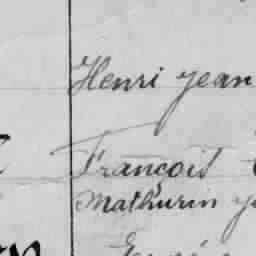 Henri Jean
François
Mathurin